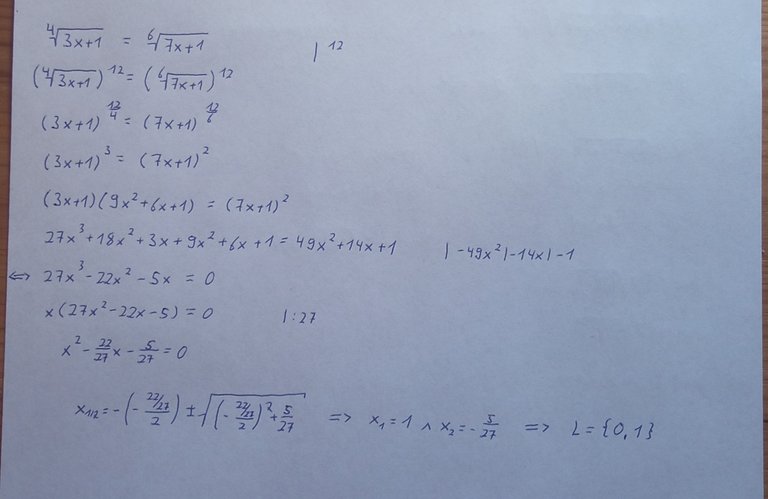 ⁴√(3x+1) = ⁶√(7x+1) |¹²
(⁴√(3x+1))¹² = (⁶√(7x+1))¹²
(3x+1)^(12/4) = (7x+1)^(12/6)
(3x+1)³ = (7x+1)²
(3x+1)(9x²+6x+1) = (7x+1)²
27x³+18x²+3x+9x²+6x+1 = 49x²+14x+1 |-49x²|-14x|-1
⟺ 27x³-22x²-5x = 0
x(27x²-22x-5) = 0 |:27
x² - 22/27 x - 5/27 = 0
x_1/2 = -(-(22/27)/2) ± √((-(22/27)/2)² + 5/27) => x₁=1 ∧ x₂=-5/27 => L={0,1}